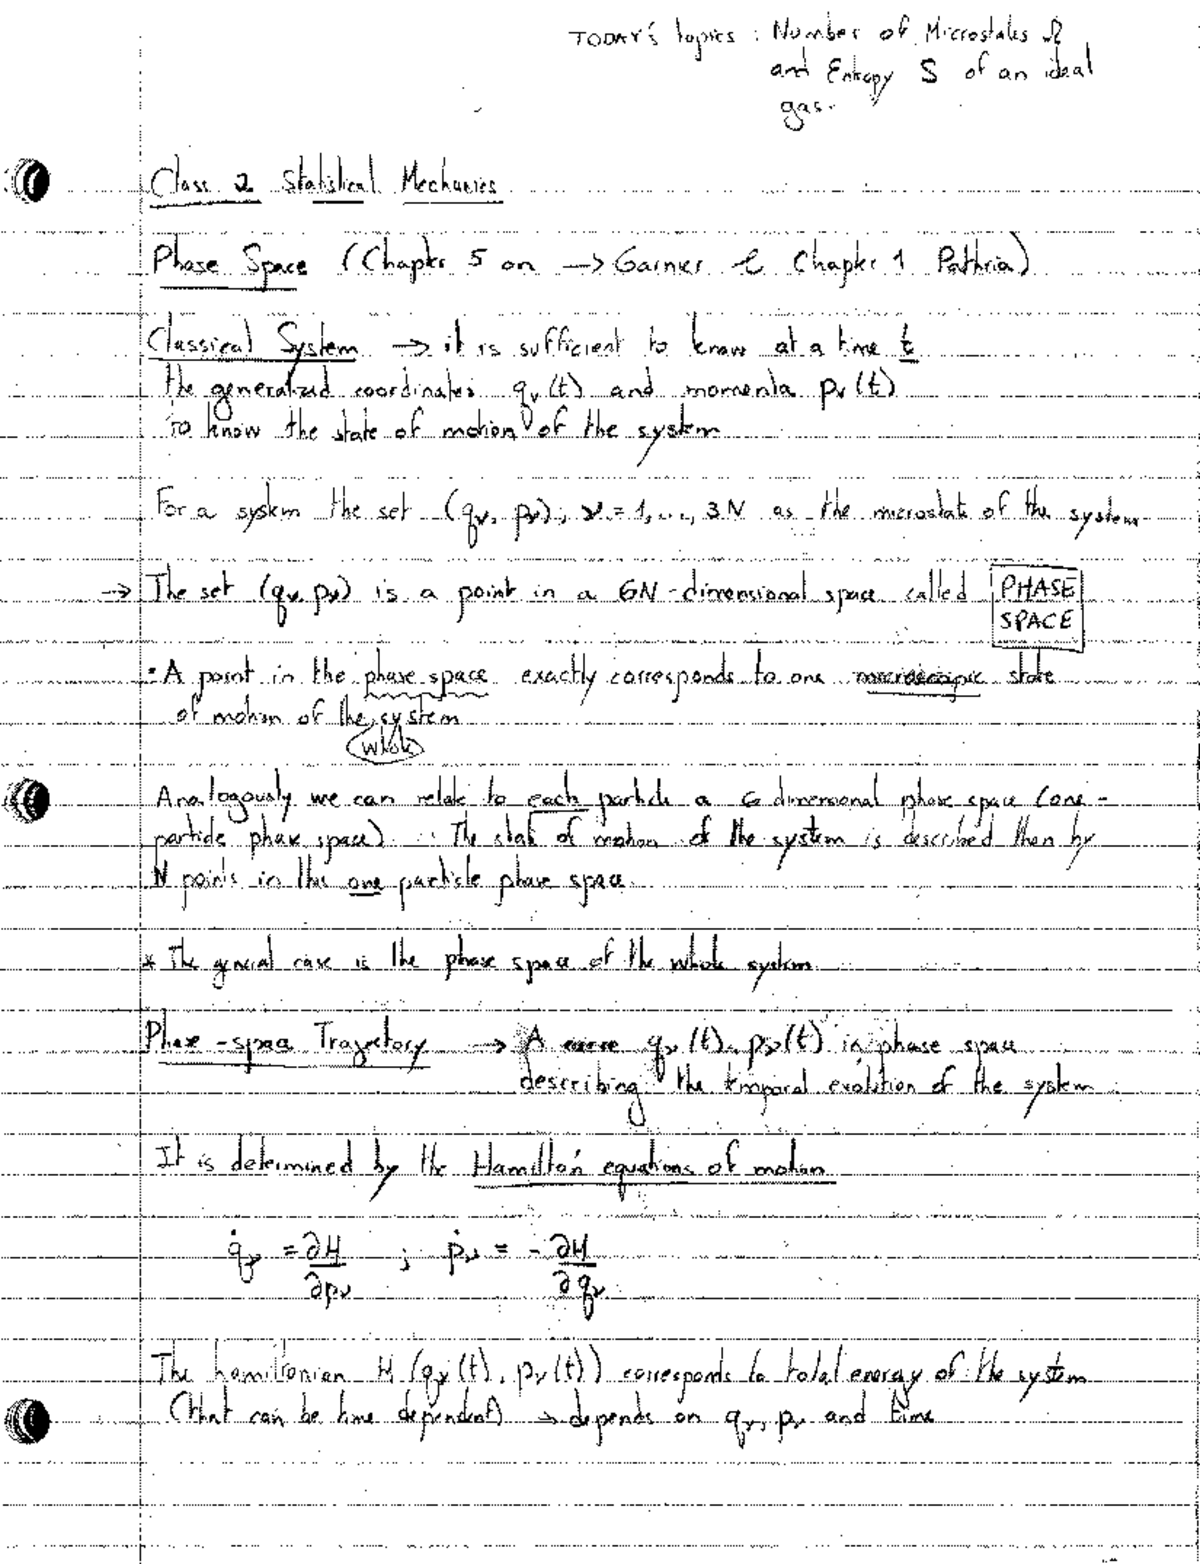 TODAY's topics : Number of Microstates Ω
and Entropy S of an ideal
gas.
Class 2 Statistical Mechanics
Phase Space (Chapter 5 on → Garnier & Chapter 1 Pathria)
Classical System → it is sufficient to know at a time t
the generalized coordinates qν(t) and momenta pν(t)
to know the state of motion of the system
For a system the set (qν, pν), ν = 1, ..., 3N as the microstate of the system
→ The set (qν, pν) is a point in a 6N-dimensional space called PHASE
SPACE
• A point in the phase space exactly corresponds to one state
of motion of the system
whole
Analogously we can relate to each particle a 6 dimensional phase space (one-
particle phase space). The state of motion of the system is described then by
N points in this one particle phase space.
* The general case is the phase space of the whole system
Phase-space Trajectory → A curve qν(t), pν(t) in phase space
describing the temporal evolution of the system
It is determined by the Hamilton equations of motion
q̇ν = ∂H/∂pν ; ṗν = - ∂H/∂qν
The hamiltonian H (qν(t), pν(t)) corresponds to total energy of the system
(that can be time dependent) → depends on qν, pν and time